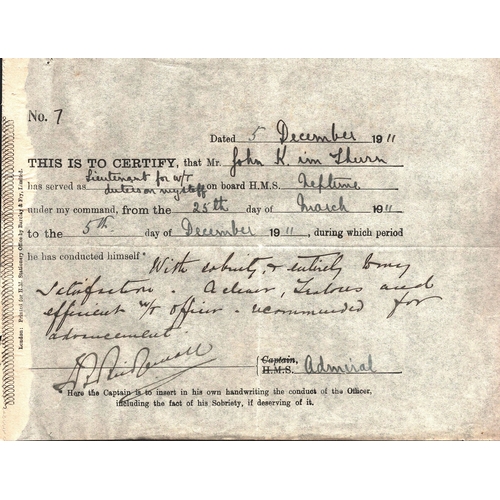 No. 7
Dated 5 December 1911
THIS IS TO CERTIFY, that Mr. John K. im Thurn
has served as Lieutenant for W/T duties on my staff on board H.M.S. Neptune
under my command, from the 25th day of March 1911
to the 5th day of December 1911, during which period
he has conducted himself* With sobriety, & entirely to my
satisfaction. A clever, zealous and
efficient W/T officer - recommended for
advancement
Captain,
H.M.S. Admiral
Here the Captain is to insert in his own handwriting the conduct of the Officer,
including the fact of his Sobriety, if deserving of it.
London: Printed for H.M. Stationery Office by Barclay & Fry, Limited.